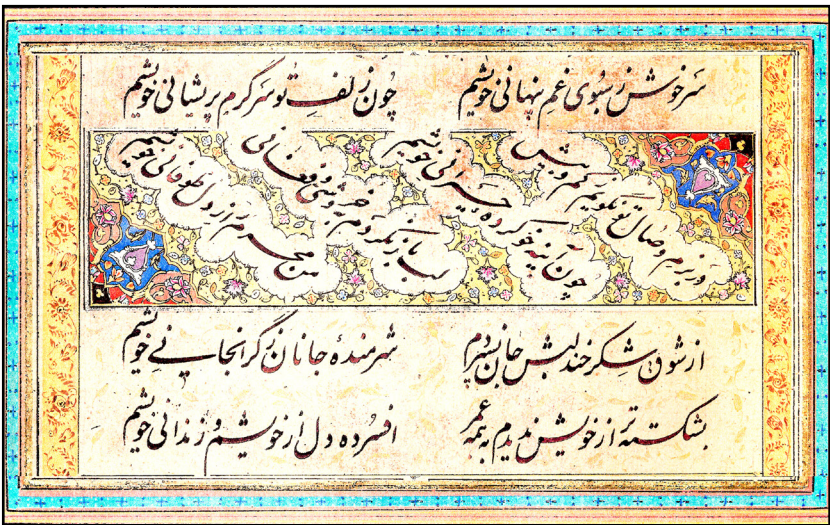 سرخوش ز سبوی غم پنهانی خویشم چون زلف تو سرگرم پریشانی خویشم
در بزم وصال تو نگویم ز کم و بیش
چون آینه خو کرده به حیرانی خویشم
لب باز نکردم به خروشی و فغانی
من محرم راز دل طوفانی خویشم
از شوق شکرخند لبش جان نسپردم شرمندهٔ جانان ز گرانجانی خویشم
بشکسته‌تر از خویش ندیدم به همه عمر افسرده دل از خویشم و زندانی خویشم